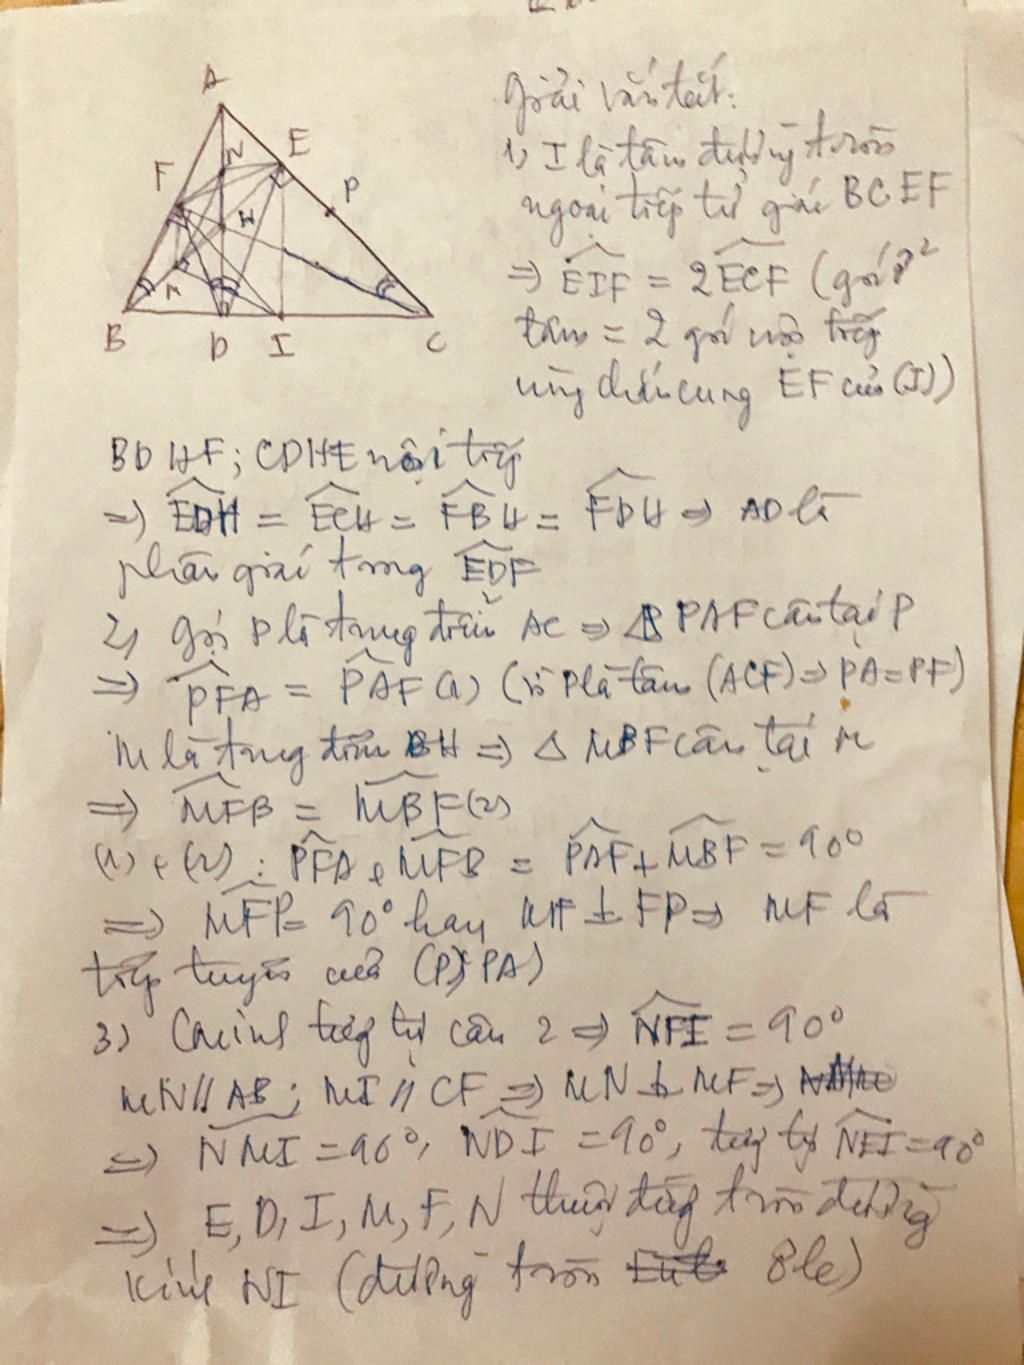 A
N
E
F
P
H
M
B
D
I
C
Giải vắn tắt:
1) I là tâm đường tròn
ngoại tiếp tứ giác BCEF
=> EIF = 2ECF (góc ở
tâm = 2 góc nội tiếp
cùng chắn cung EF của (I))
BDHF; CDHE nội tiếp
=> EDH = ECH = FBH = FDH => AD là
phân giác trong EDF
2) Gọi P là trung điểm AC => Δ PAF cân tại P
=> PFA = PAF (1) (vì P là tâm (ACF) => PA = PF)
M là trung điểm BH => Δ MBF cân tại M
=> MFB = MBF (2)
(1) + (2) : PFA + MFB = PAF + MBF = 90°
=> MFP = 90° hay MF ⊥ FP => MF là
tiếp tuyến của (P; PA)
3) C/minh tương tự câu 2 => NFI = 90°
MN // AB; MI // CF => MN ⊥ MF =>
=> NMI = 90°, NDI = 90°, tương tự NEI = 90°
=> E, D, I, M, F, N thuộc đường tròn đường
kính NI (đường tròn Ơle)